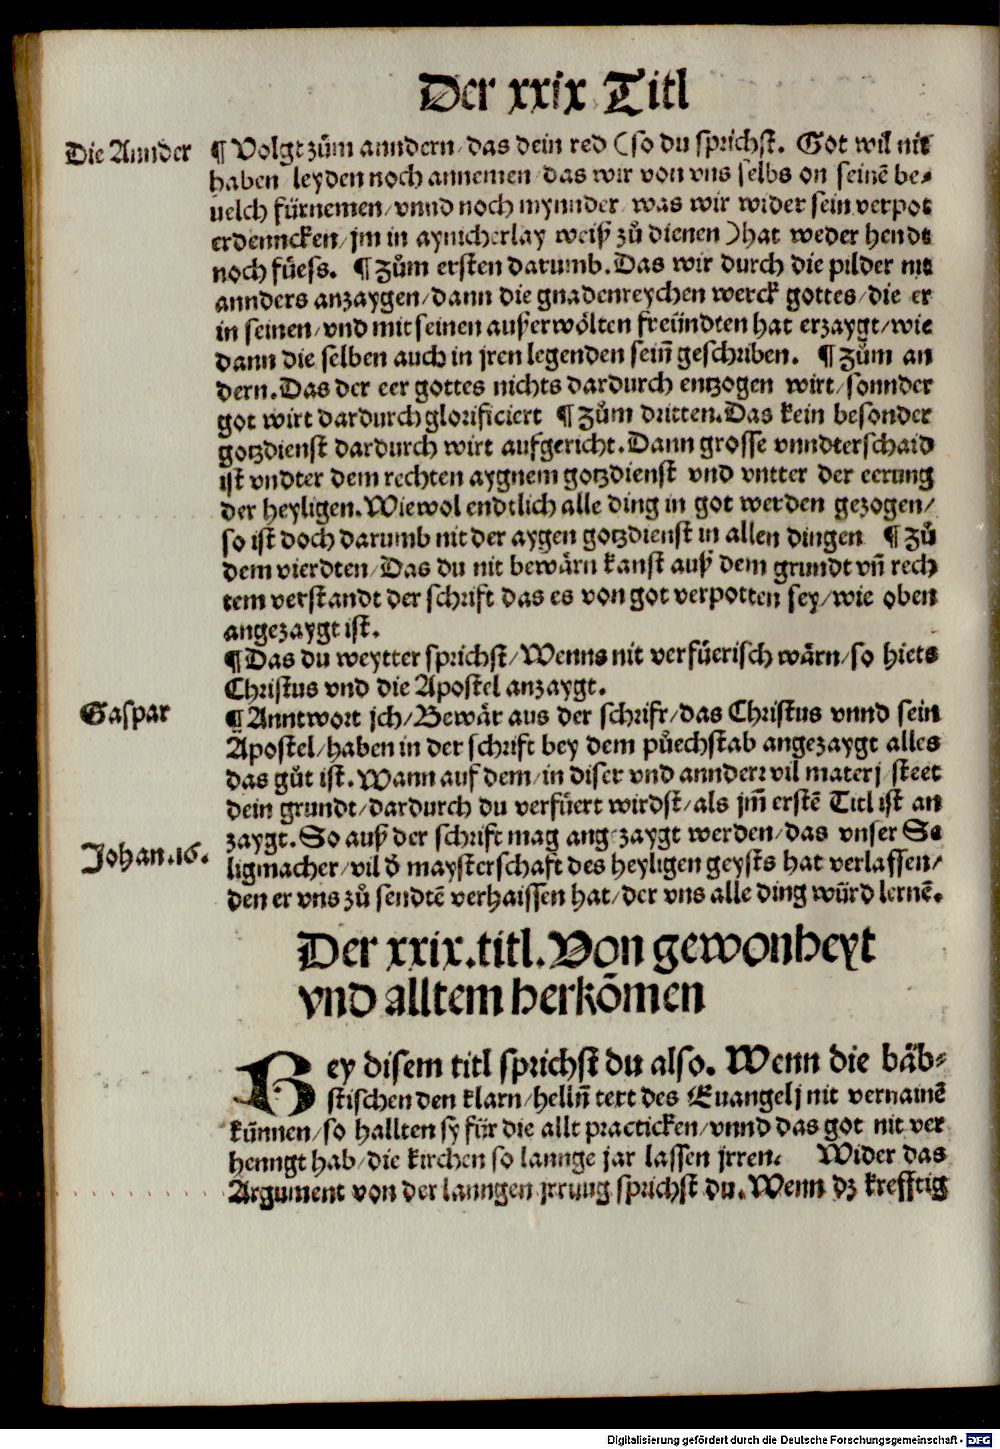 Der xxix Titl
Die Annder
¶ Volgt zům anndern / das dein red ( so du sprichst. Got wil nit
haben leyden noch annemen / das wir von vns selbs on seinē be⸗
uelch fürnemen / vnnd noch mynnder / was wir wider sein verpot
erdenncken / jm in aynicherlay weiß zů dienen ) hat weder hendt
noch füess. ¶ Zům ersten darumb. Das wir durch die pilder nit
annders anzaygen / dann die gnadenreychen werck gottes / die er
in seinen / vnd mit seinen außerwölten freündten hat erzaygt / wie
dann die selben auch in jren legenden sein̄ geschriben. ¶ Zům an
dern. Das der eer gottes nichts dardurch entzogen wirt / sonnder
got wirt dardurch glorificiert ¶ Zům dritten. Das kein besonder
gotzdienst dardurch wirt aufgericht. Dann grosse vnndterschaid
ist vndter dem rechten aygnem gotzdienst vnd vntter der eerung
der heyligen. Wiewol endtlich alle ding in got werden gezogen /
so ist doch darumb nit der aygen gotzdienst in allen dingen ¶ Zů
dem vierdten / Das du nit bewärn kanst auß dem grundt vn̄ rech
tem verstandt der schrift das es von got verpotten sey / wie oben
angezaygt ist.
¶ Das du weytter sprichst / Wenns nit verfüerisch wärn / so hiets
Christus vnd die Apostel anzaygt.
Gaspar
¶ Anntwort jch / Bewär aus der schrifr / das Christus vnnd sein
Apostel / haben in der schrift bey dem půechstab angezaygt alles
das gůt ist. Wann auf dem / in diser vnd annderr vil materj / steet
dein grundt / dardurch du verfüert wirdst / als jm̄ erstē Titl ist an
zaygt. So auß der schrift mag angezaygt werden / das vnser Se
Johan. 16.
ligmacher / vil d̄ maysterschaft des heyligen geysts hat verlassen /
den er vns zů sendtē verhaissen hat / der vns alle ding würd lernē.
Der xxix. titl. Von gewonheyt
vnd alltem herkōmen
Bey disem titl sprichst du also. Wenn die bäb⸗
stischen den klarn / helln̄ text des Euangelj nit vernainē
künnen / so hallten sy für die allt practicken / vnnd das got nit ver
henngt hab / die kirchen so lannge jar lassen jrren. Wider das
Argument von der lanngen jrrung sprichst du. Wenn dz krefftig
Digitalisierung gefördert durch die Deutsche Forschungsgemeinschaft - DFG